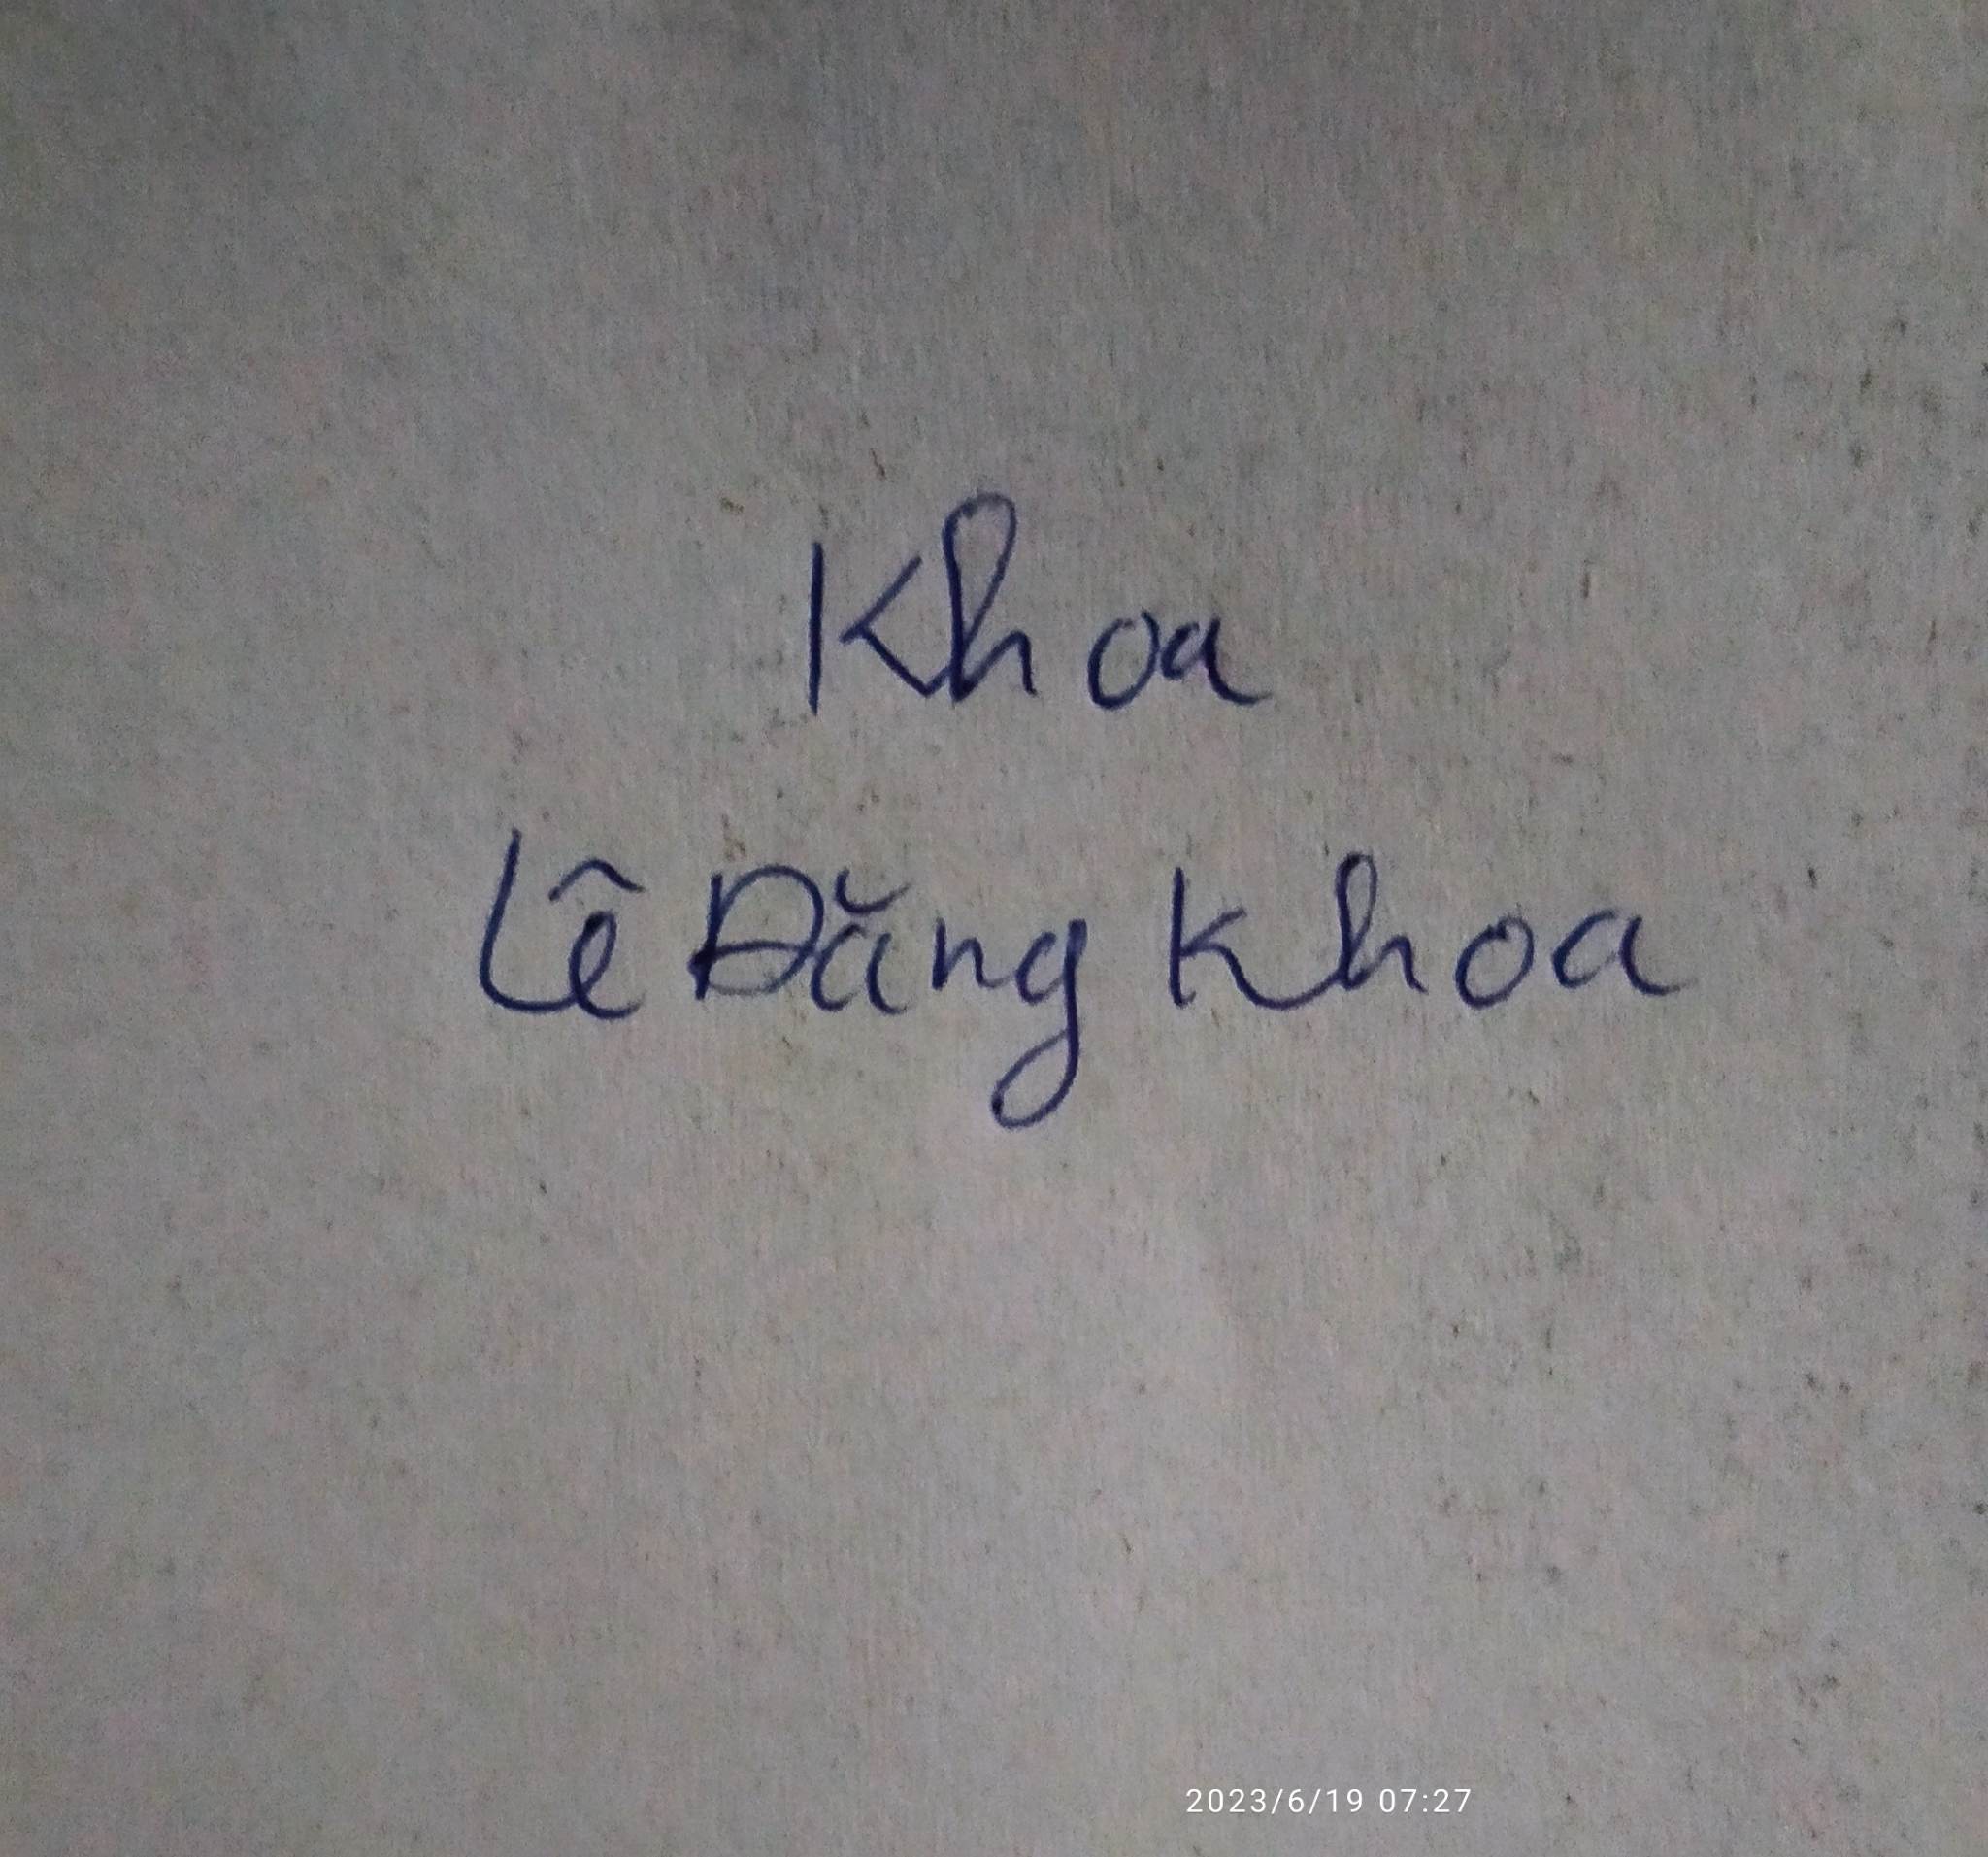 Khoa
Lê Đăng Khoa
2023/6/19 07:27